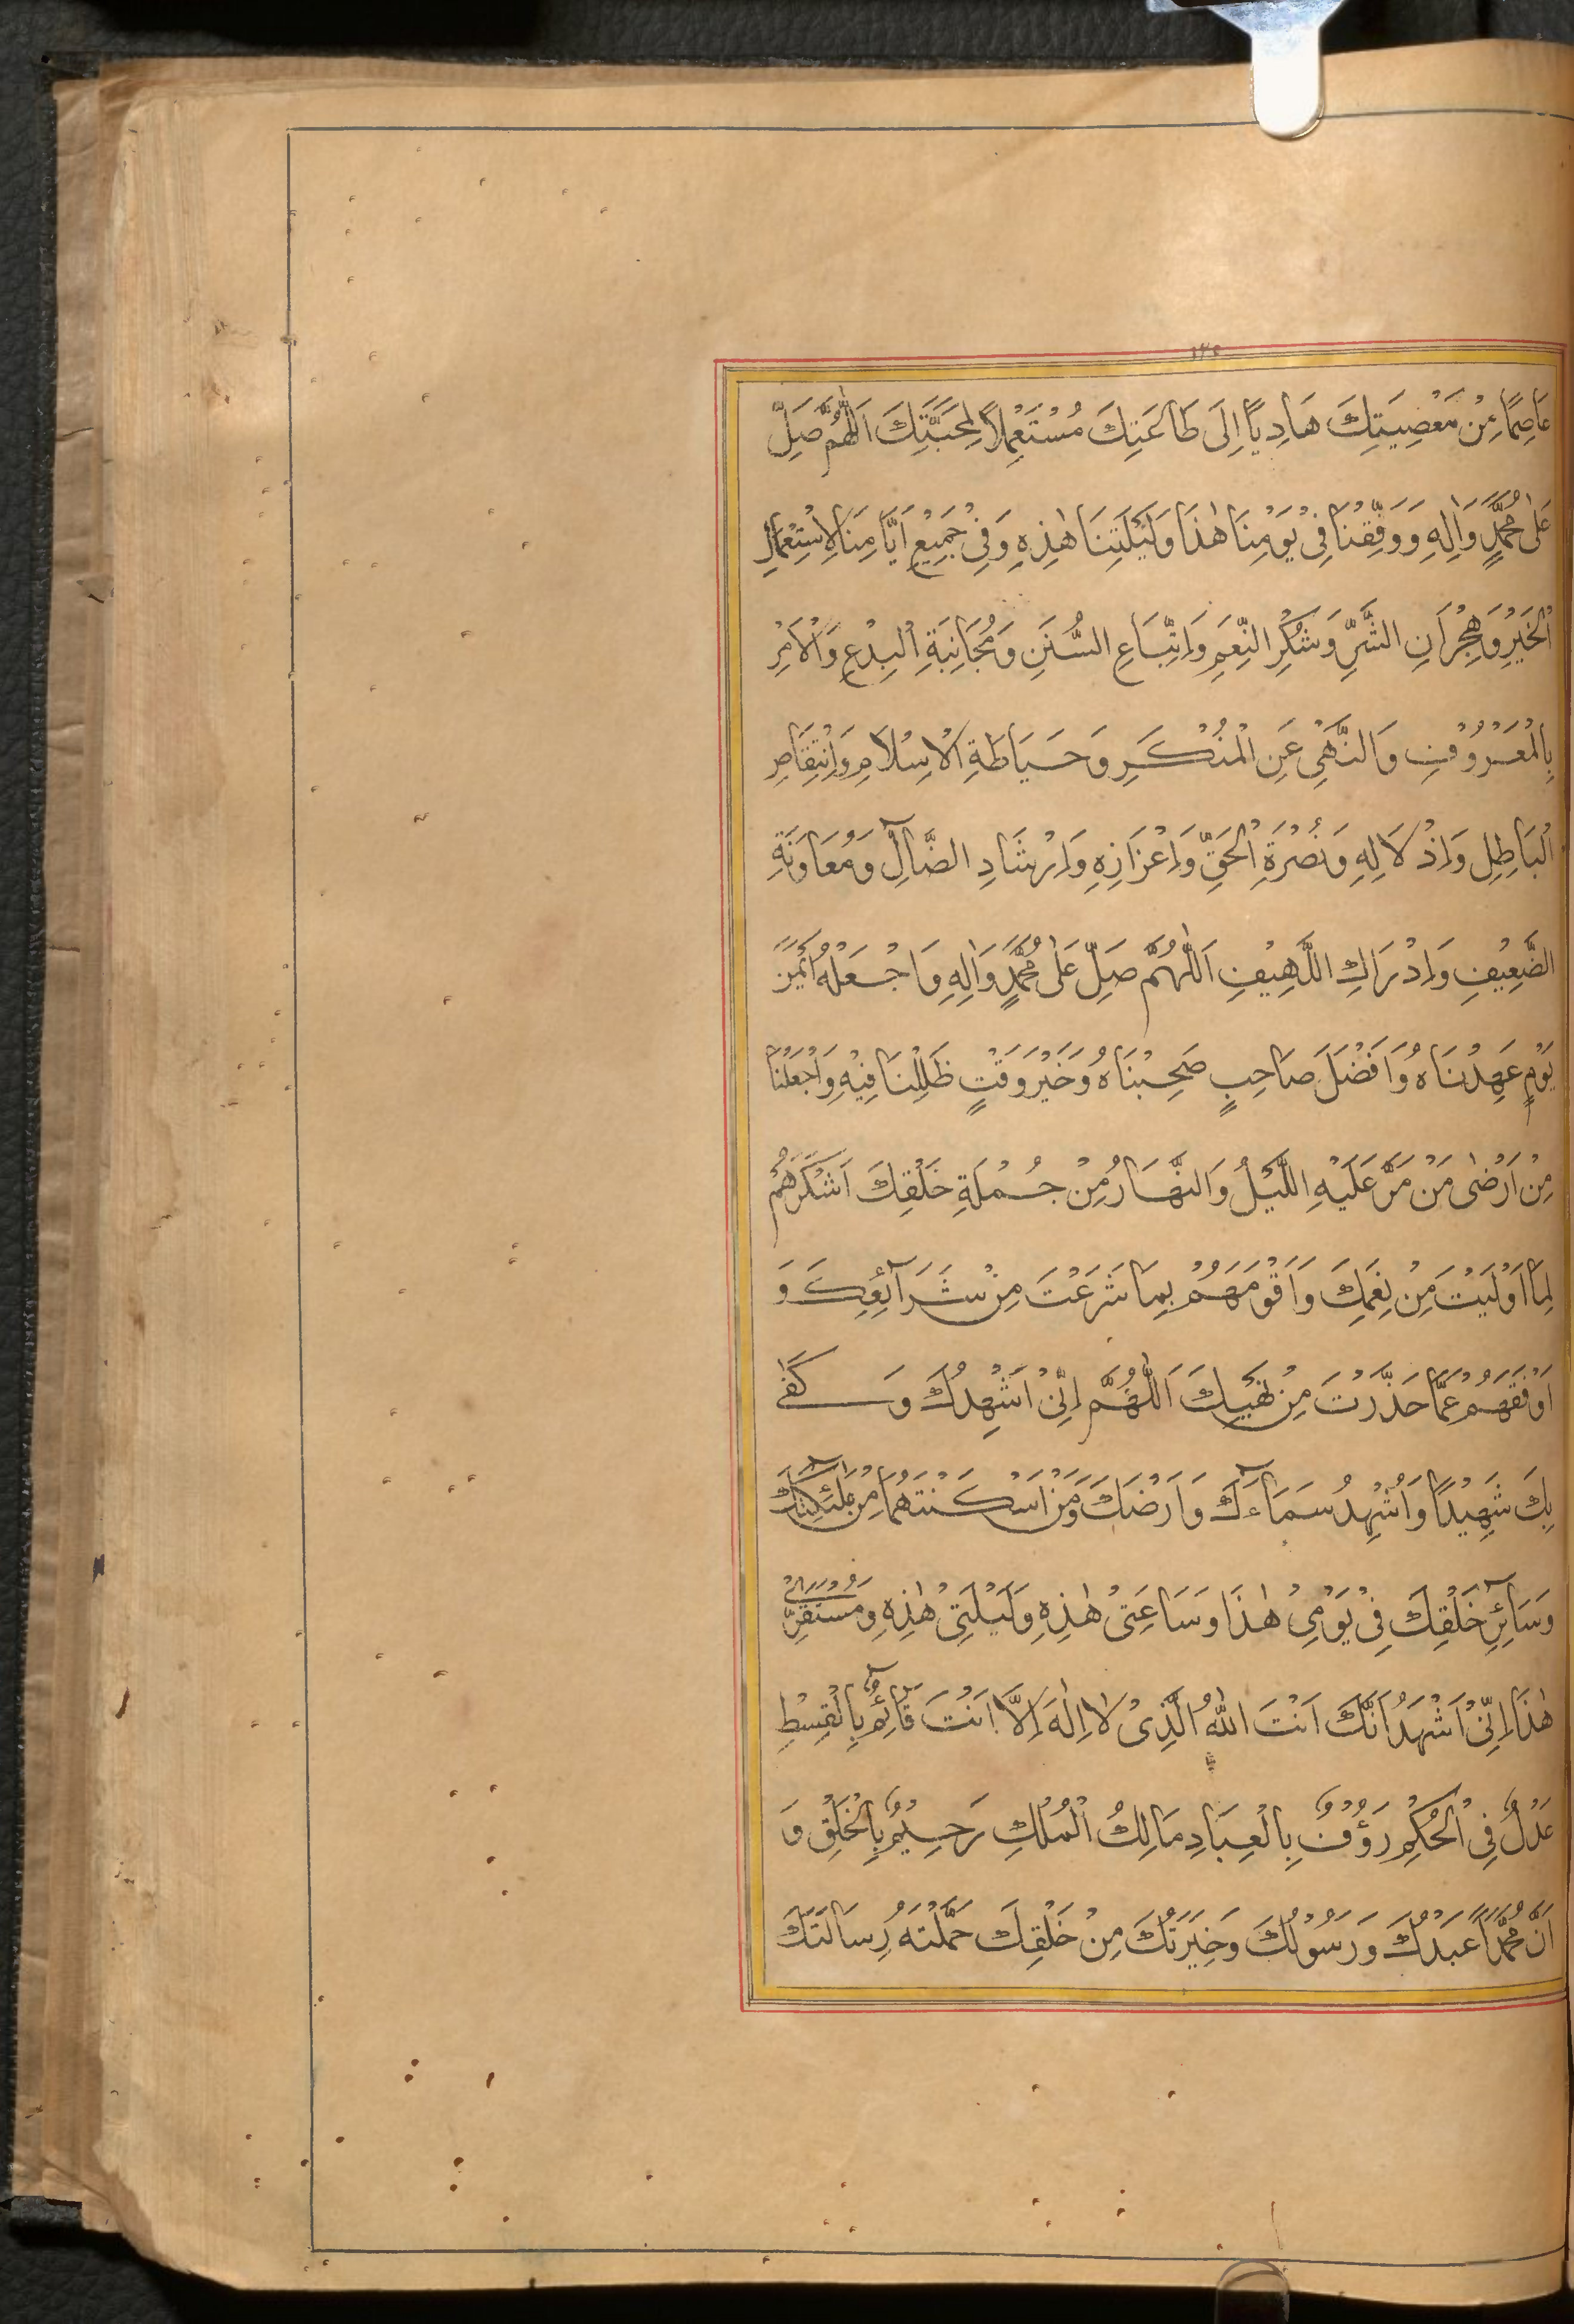 عَاصِمًا مِنْ مَعْصِيَتِكَ هَادِيًا اِلَى طَاعَتِكَ مُسْتَعْمِلًا لِمَحَبَّتِكَ اَللّٰهُمَّ صَلِّ
عَلٰى مُحَمَّدٍ وَاٰلِهِ وَوَفِّقْنَا فِيْ يَوْمِنَا هٰذَا وَلَيْلَتِنَا هٰذِهِ وَفِيْ جَمِيْعِ اَيَّامِنَا لِاسْتِعْمَالِ
الْخَيْرِ وَهِجْرَانِ الشَّرِّ وَشُكْرِ النِّعَمِ وَاتِّبَاعِ السُّنَنِ وَمُجَانَبَةِ الْبِدْعِ وَالْاَمْرِ
بِالْمَعْرُوْفِ وَالنَّهْيِ عَنِ الْمُنْكَرِ وَحَيَاطَةِ الْاِسْلَامِ وَانْتِقَاصِ
الْبَاطِلِ وَاِذْلَالِهِ وَنُصْرَةِ الْحَقِّ وَاِعْزَازِهِ وَاِرْشَادِ الضَّآلِّ وَمُعَاوَنَةِ
الضَّعِيْفِ وَاِدْرَاكِ اللَّهِيْفِ اَللّٰهُمَّ صَلِّ عَلٰى مُحَمَّدٍ وَاٰلِهِ وَاجْعَلْهُ اَيْمَنَ
يَوْمٍ عَهِدْنَاهُ وَاَفْضَلَ صَاحِبٍ صَحِبْنَاهُ وَخَيْرَ وَقْتٍ ظَلِلْنَا فِيْهِ وَاجْعَلْنَا
مِنْ اَرْضٰى مَنْ مَرَّ عَلَيْهِ اللَّيْلُ وَالنَّهَارُ مِنْ جُمْلَةِ خَلْقِكَ اَشْكَرَهُمْ
لِمَا اَوْلَيْتَ مِنْ نِعَمِكَ وَاَقْوَمَهُمْ بِمَا شَرَعْتَ مِنْ شَرَآئِعِكَ وَ
اَوْقَفَهُمْ عَمَّا حَذَّرْتَ مِنْ نَهْيِكَ اَللّٰهُمَّ اِنِّيْ اُشْهِدُكَ وَكَفٰى
بِكَ شَهِيْدًا وَاُشْهِدُ سَمَآءَكَ وَاَرْضَكَ وَمَنْ اَسْكَنْتَهُمَا مِنْ مَلٰٓئِكَتِكَ
وَسَآئِرِ خَلْقِكَ فِيْ يَوْمِيْ هٰذَا وَسَاعَتِيْ هٰذِهِ وَلَيْلَتِيْ هٰذِهِ وَمُسْتَقَرِّيْ
هٰذَا اِنِّيْ اَشْهَدُ اَنَّكَ اَنْتَ اللهُ الَّذِيْ لَا اِلٰهَ اِلَّا اَنْتَ قَآئِمٌ بِالْقِسْطِ
عَدْلٌ فِي الْحُكْمِ رَؤُوْفٌ بِالْعِبَادِ مَالِكُ الْمُلْكِ رَحِيْمٌ بِالْخَلْقِ وَ
اَنَّ مُحَمَّدًا عَبْدُكَ وَرَسُوْلُكَ وَخِيَرَتُكَ مِنْ خَلْقِكَ حَمَّلْتَهُ رِسَالَتَكَ